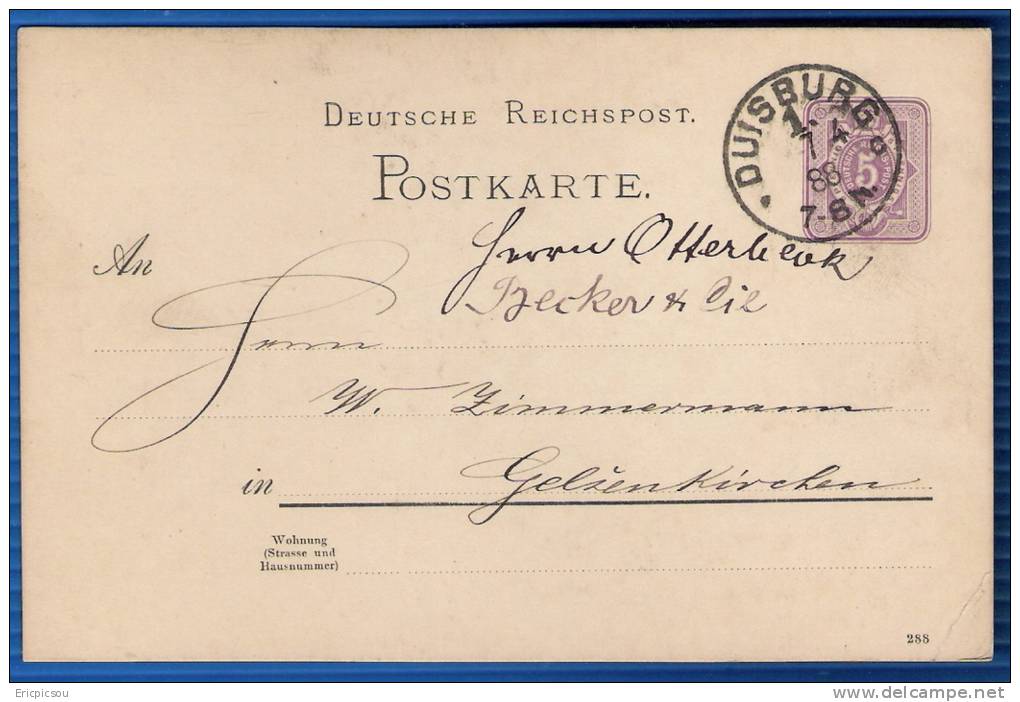 DEUTSCHE REICHSPOST.
POSTKARTE.
DUISBURG
1.
7 4
88
7-8 N.
5
Herrn Otterbeck
Becker & Cie
An
Herrn
W. Zimmermann
in Gelsenkirchen
Wohnung
(Strasse und
Hausnummer)
288
Ericpicsou
delcampe.net